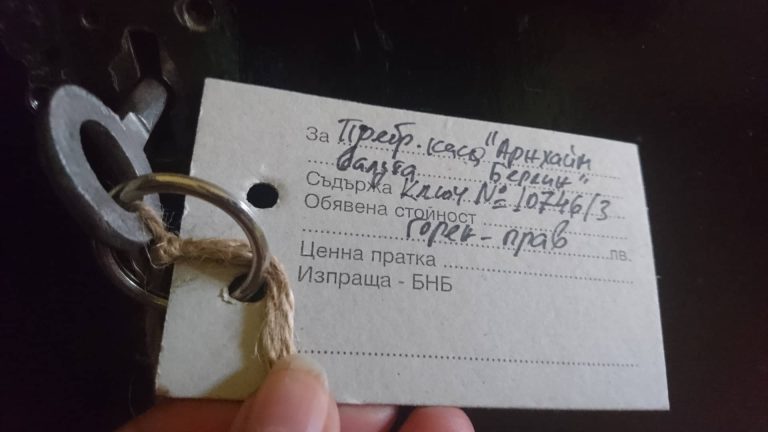 За Требр. каса "Арнхайм
валута Берлин"
Съдържа ключ № 10746/3
Обявена стойност
Горен - прав лв.
Ценна пратка
Изпраща - БНБ